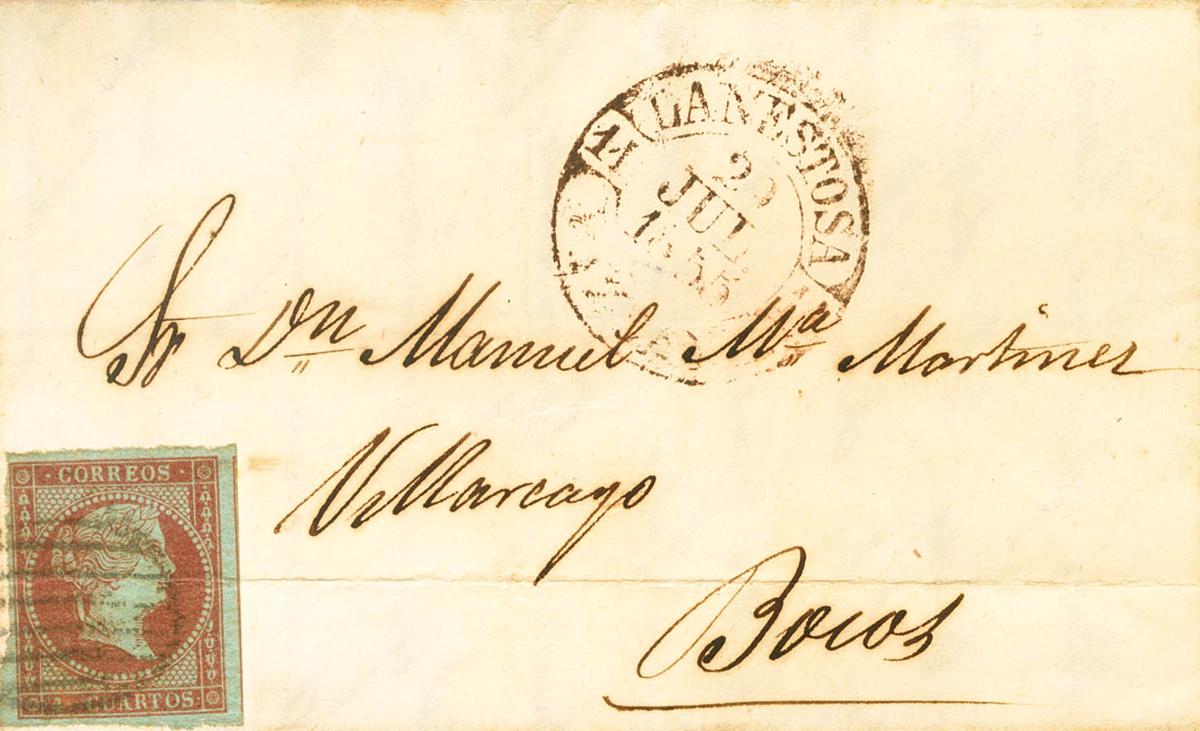 LANESTOSA
JUL
1855
Sr Dn Manuel Ma Martinez
Villarcayo
Bocos
CORREOS